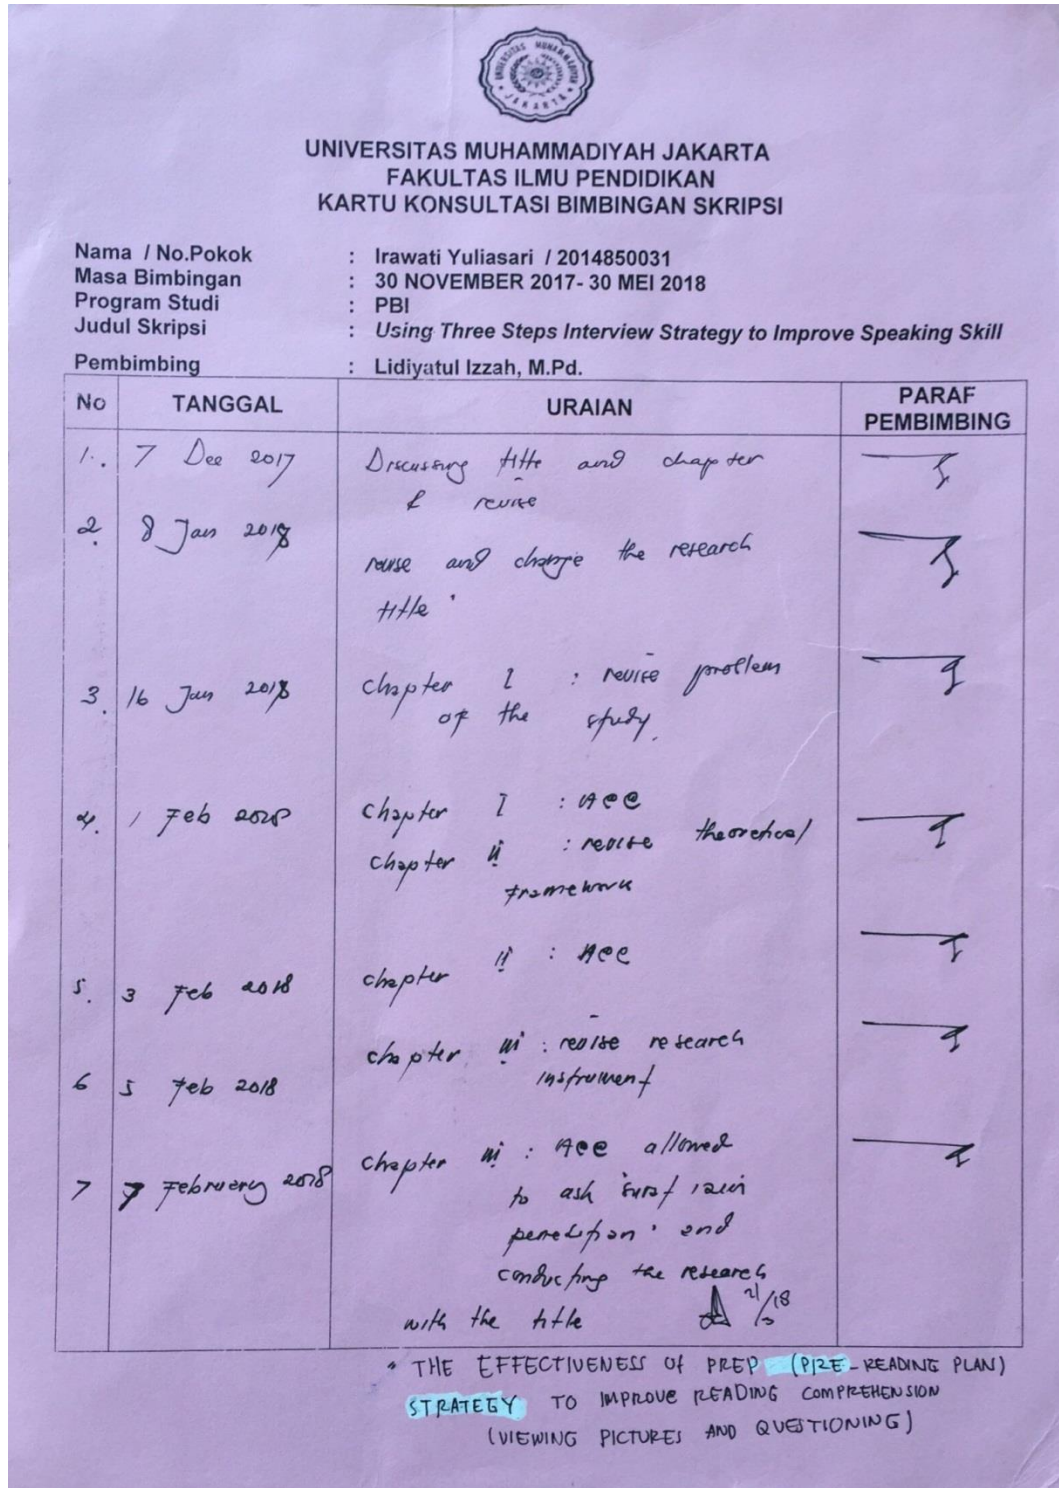 UNIVERSITAS MUHAMMADIYAH
JAKARTA
UNIVERSITAS MUHAMMADIYAH JAKARTA
FAKULTAS ILMU PENDIDIKAN
KARTU KONSULTASI BIMBINGAN SKRIPSI
Nama / No.Pokok : Irawati Yuliasari / 2014850031
Masa Bimbingan : 30 NOVEMBER 2017- 30 MEI 2018
Program Studi : PBI
Judul Skripsi : Using Three Steps Interview Strategy to Improve Speaking Skill
Pembimbing : Lidiyatul Izzah, M.Pd.
No TANGGAL URAIAN PARAF PEMBIMBING
1. 7 Dec 2017 Discussing title and chapter
& revise
2. 8 Jan 2018
revise and change the research
title
3. 16 Jan 2018 chapter I : revise problem
of the study.
4. 1 Feb 2018 chapter I : Acc
chapter II : revise theoretical
framework
5. 3 Feb 2018 chapter II : Acc
chapter III : revise research
6 5 Feb 2018 instrument
7 7 February 2018 chapter III : Acc allowed
to ask "surat izin
penelitian" and
conducting the research
with the title
* THE EFFECTIVENESS Of PREP (PRE-READING PLAN)
STRATEGY TO IMPROVE READING COMPREHENSION
(VIEWING PICTURES AND QUESTIONING)